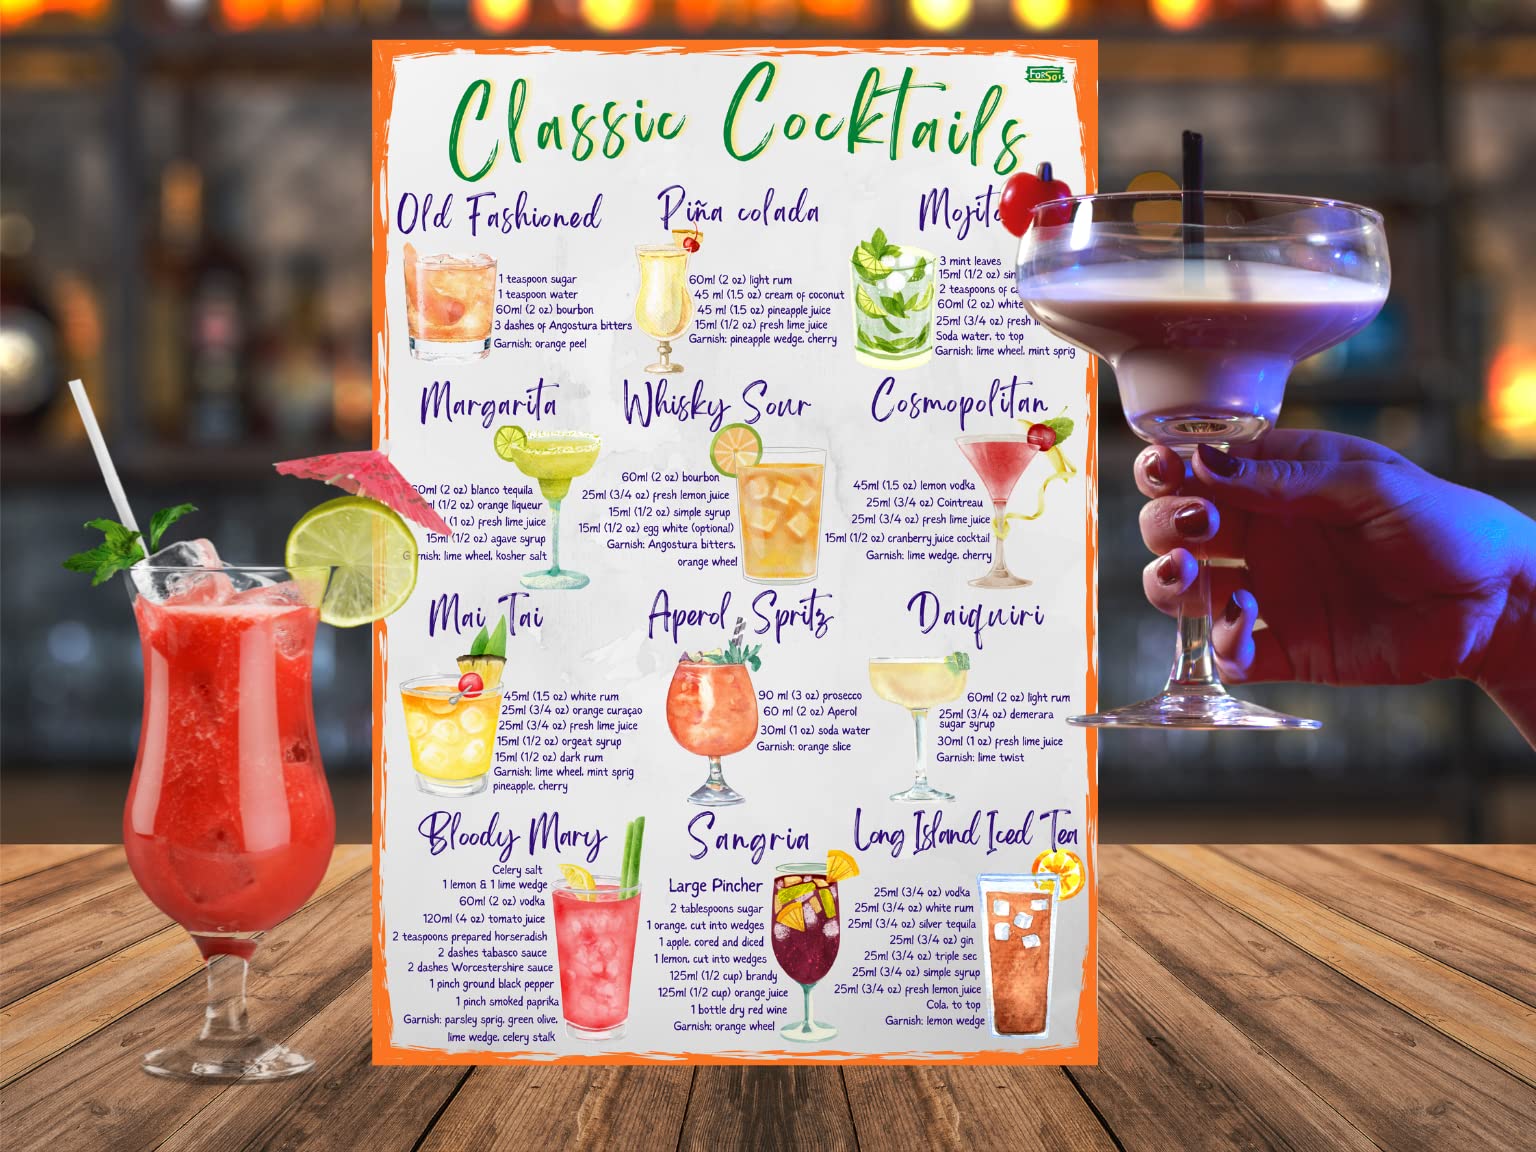 Classic Cocktails
ForSo!
Old Fashioned
1 teaspoon sugar
1 teaspoon water
60ml (2 oz) bourbon
3 dashes of Angostura bitters
Garnish: orange peel
Piña colada
60ml (2 oz) light rum
45 ml (1.5 oz) cream of coconut
45 ml (1.5 oz) pineapple juice
15ml (1/2 oz) fresh lime juice
Garnish: pineapple wedge, cherry
Mojito
3 mint leaves
15ml (1/2 oz)
2 teaspoons of
60ml (2 oz) white
25ml (3/4 oz) fresh
Soda water, to top
Garnish: lime wheel, mint sprig
Margarita
60ml (2 oz) blanco tequila
(1/2 oz) orange liqueur
(1 oz) fresh lime juice
15ml (1/2 oz) agave syrup
Garnish: lime wheel, kosher salt
Whisky Sour
60ml (2 oz) bourbon
25ml (3/4 oz) fresh lemon juice
15ml (1/2 oz) simple syrup
15ml (1/2 oz) egg white (optional)
Garnish: Angostura bitters,
orange wheel
Cosmopolitan
45ml (1.5 oz) lemon vodka
25ml (3/4 oz) Cointreau
25ml (3/4 oz) fresh lime juice
15ml (1/2 oz) cranberry juice cocktail
Garnish: lime wedge, cherry
Mai Tai
45ml (1.5 oz) white rum
25ml (3/4 oz) orange curaçao
25ml (3/4 oz) fresh lime juice
15ml (1/2 oz) orgeat syrup
15ml (1/2 oz) dark rum
Garnish: lime wheel, mint sprig
pineapple, cherry
Aperol Spritz
90 ml (3 oz) prosecco
60 ml (2 oz) Aperol
30ml (1 oz) soda water
Garnish: orange slice
Daiquiri
60ml (2 oz) light rum
25ml (3/4 oz) demerara
sugar syrup
30ml (1 oz) fresh lime juice
Garnish: lime twist
Bloody Mary
Celery salt
1 lemon & 1 lime wedge
60ml (2 oz) vodka
120ml (4 oz) tomato juice
2 teaspoons prepared horseradish
2 dashes tabasco sauce
2 dashes Worcestershire sauce
1 pinch ground black pepper
1 pinch smoked paprika
Garnish: parsley sprig, green olive,
lime wedge, celery stalk
Sangria
Large Pincher
2 tablespoons sugar
1 orange, cut into wedges
1 apple, cored and diced
1 lemon, cut into wedges
125ml (1/2 cup) brandy
125ml (1/2 cup) orange juice
1 bottle dry red wine
Garnish: orange wheel
Long Island Iced Tea
25ml (3/4 oz) vodka
25ml (3/4 oz) white rum
25ml (3/4 oz) silver tequila
25ml (3/4 oz) gin
25ml (3/4 oz) triple sec
25ml (3/4 oz) simple syrup
25ml (3/4 oz) fresh lemon juice
Cola, to top
Garnish: lemon wedge